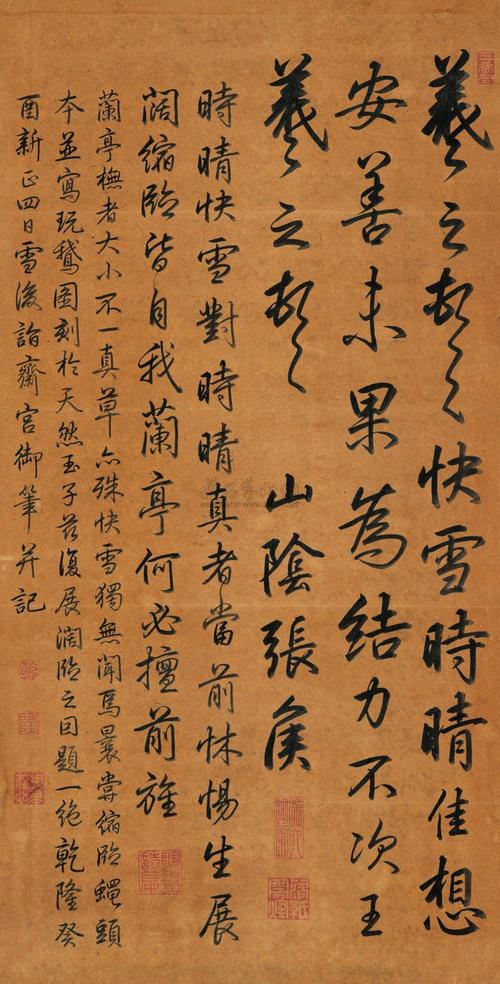 羲之頓首快雪時晴佳想
安善未果為結力不次王
羲之頓首 山陰張侯
時晴快雪對時晴真者當前怵惕生展
闊縮臨皆自我蘭亭何必擅前旌
蘭亭橅者大小不一真草亦殊快雪獨無聞焉曩嘗縮臨蠅頭
本並寫玩鵞圖刻於天然玉子茲復展濶臨之因題一絶乾隆癸
酉新正四日雪後詣齋宮御筆并記